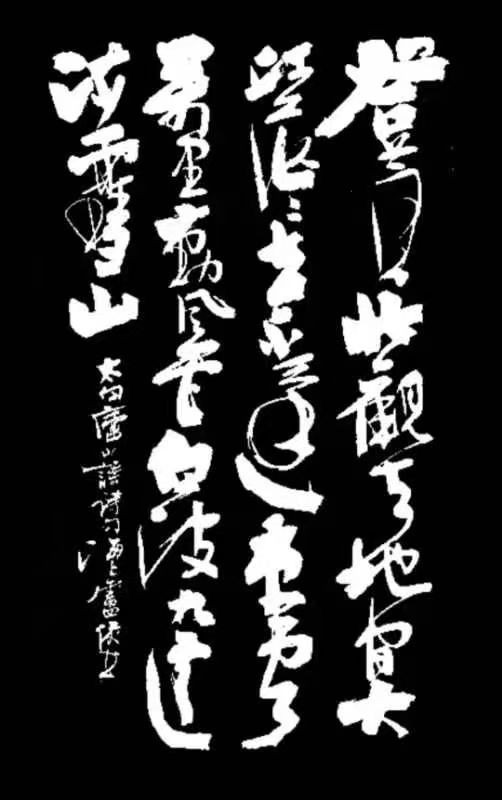 登高壯觀天地間大
江茫茫去不還黃雲
萬里動風色白波九道
流雪山
太白廬山謠詩句 海上